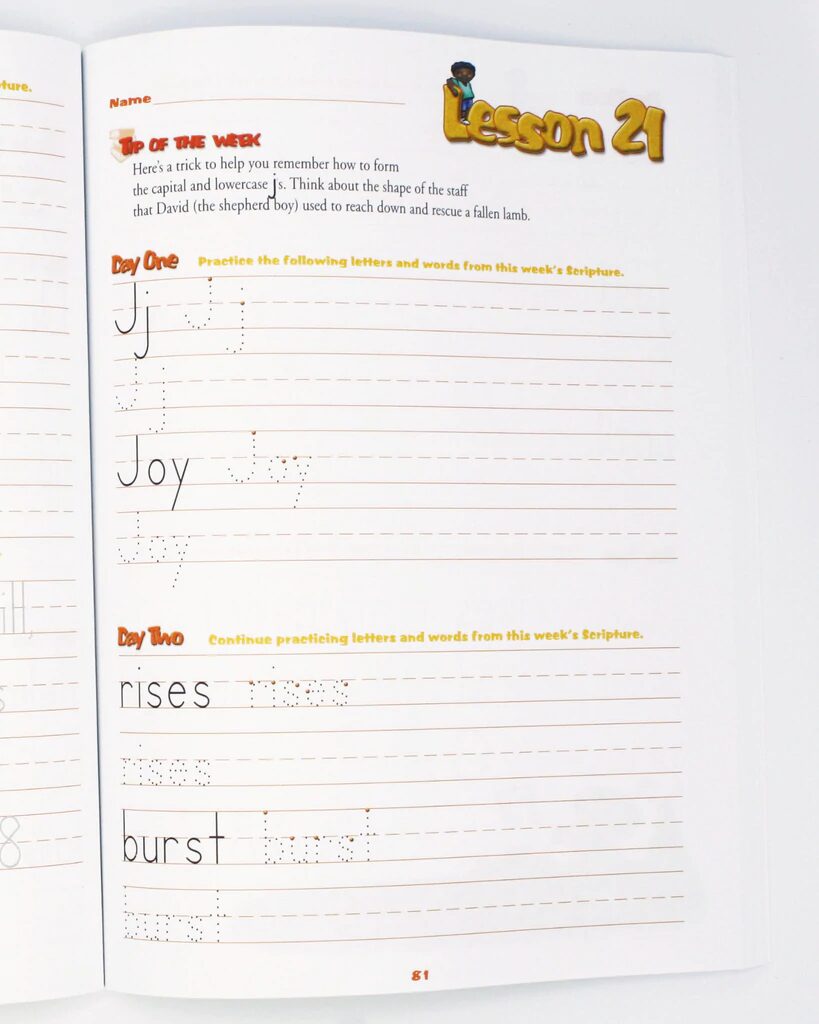 ture.
ill,
s
8
Lesson 21
Name
Tip of the Week
Here's a trick to help you remember how to form
the capital and lowercase js. Think about the shape of the staff
that David (the shepherd boy) used to reach down and rescue a fallen lamb.
Day One Practice the following letters and words from this week's Scripture.
Jj Jj
Jj
Joy Joy
Joy
Day Two Continue practicing letters and words from this week's Scripture.
rises rises
rises
burst burst
burst
81